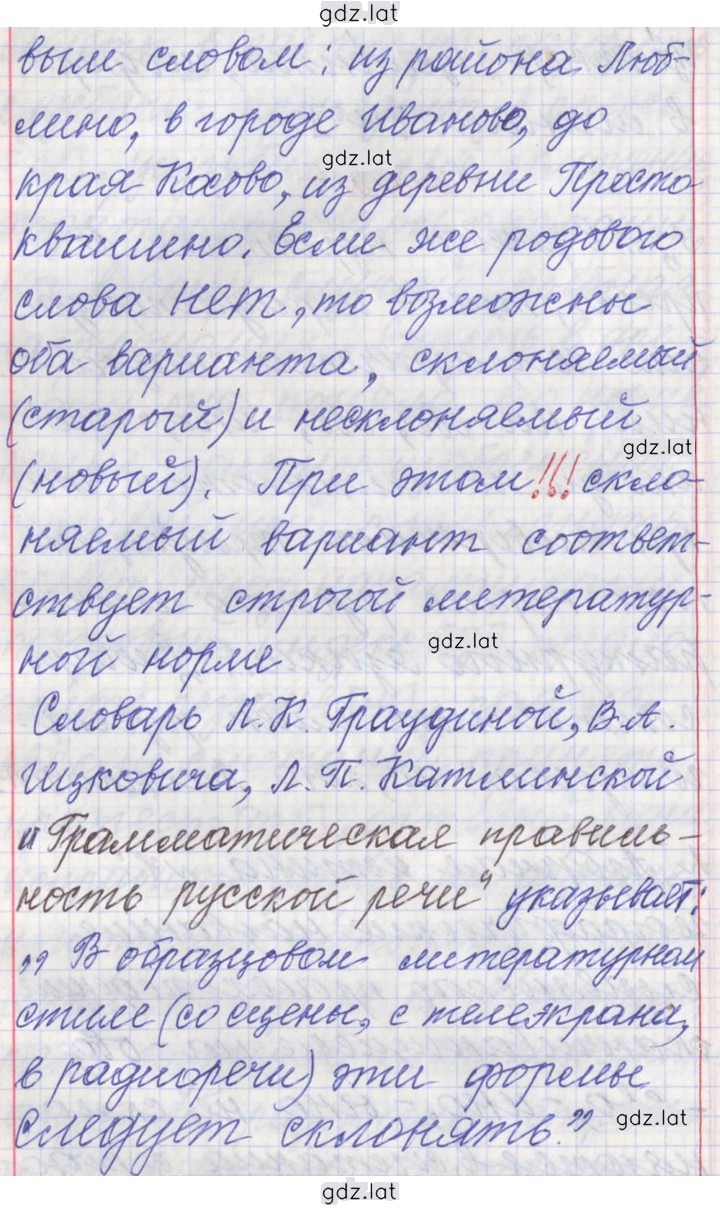 gdz.lat
вым словом: из района Люб-
лино, в городе Иваново, до
gdz.lat
края Косово, из деревни Просто-
квашино. Если же родового
слова нет, то возможны
оба варианта, склоняемый
(старый) и несклоняемый
gdz.lat
(новый). При этом!!! скло-
няемый вариант соответ-
ствует строгой литератур-
gdz.lat
ной норме
Словарь Л.К. Граудиной, В.А.
Ицковича, Л.П. Катлинской
"Грамматическая правиль-
ность русской речи" указывает:
"В образцовом литературном
стиле (со сцены, с телеэкрана,
в радиоречи) эти формы
gdz.lat
следует склонять."
gdz.lat